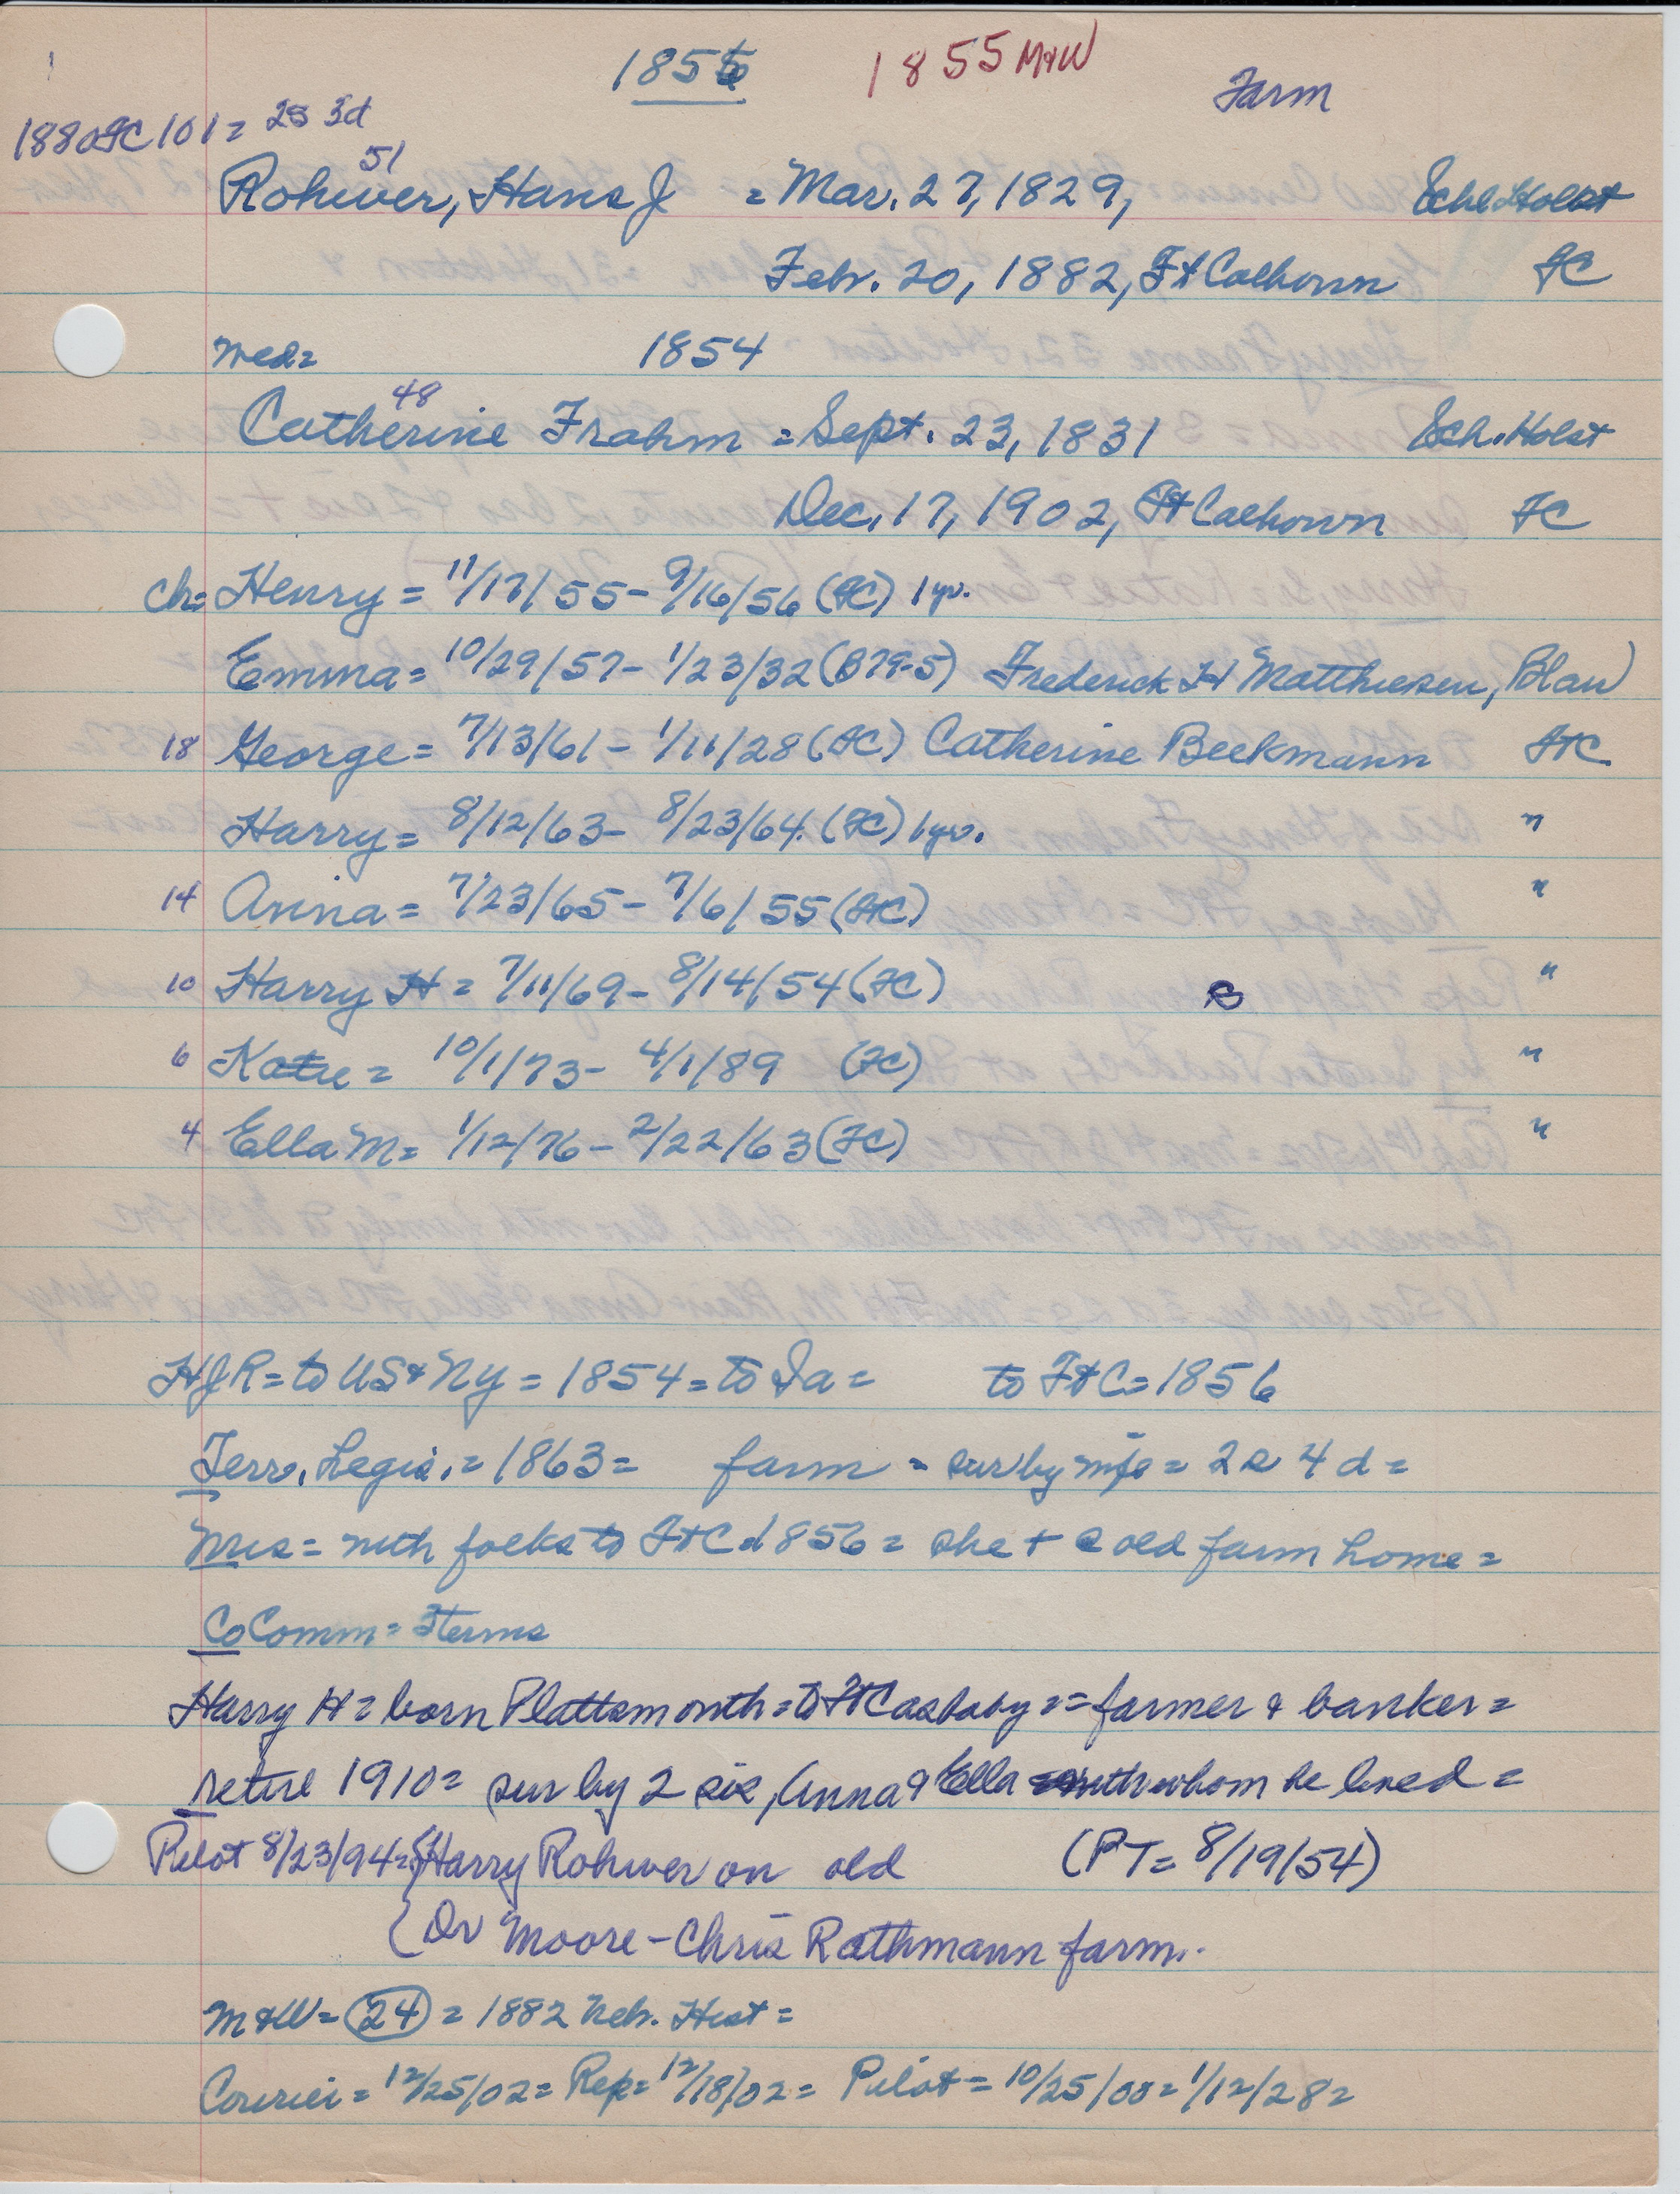 1856 1855 M&W Farm
1880 FC 101 = 2s 3d
51
Rohwer, Hans J = Mar. 27, 1829, Schl Holst
Feb. 20, 1882, Ft Calhoun FC
wed= 1854
48
Catherine Frahm = Sept. 23, 1831 Sch. Holst
Dec. 17, 1902, Ft Calhoun FC
ch= Henry = 11/17/55- 9/16/56 (FC) 1 yr.
Emma= 10/29/57- 1/23/32 (B79-5) Frederick H Matthiesen, Blair
18 George= 7/13/61- 1/11/28 (FC) Catherine Beekmann FtC
Harry= 8/12/63- 8/23/64. (FC) 1 yr. "
14 Anna= 7/23/65- 7/6/55 (FtC) "
10 Harry H = 7/11/69- 8/14/54 (FC) B "
6 Katie = 10/1/73- 4/1/89 (FC) "
4 Ella M= 1/12/76- 2/22/63 (FC) "
HJR= to US & NY = 1854= to Ia = to FtC= 1856
Terr. Legis. = 1863= farm = sur by wife = 2s 4d =
Mrs = with folks to FtC 1856= she + @ old farm home =
Co Comm= 3 terms
Harry H = born Plattsmouth= to FtC as baby = = farmer & banker =
retire 1910= sur by 2 sis, Anna & Ella with whom he lived =
Pilot 8/23/94= {Harry Rohwer on old (PT= 8/19/54)
{Dr Moore - Chris Rathmann farm.
M&W= 24 = 1882 Neb. Hist =
Courier = 12/25/02= Rep= 12/18/02= Pilot = 10/25/00= 1/12/28=